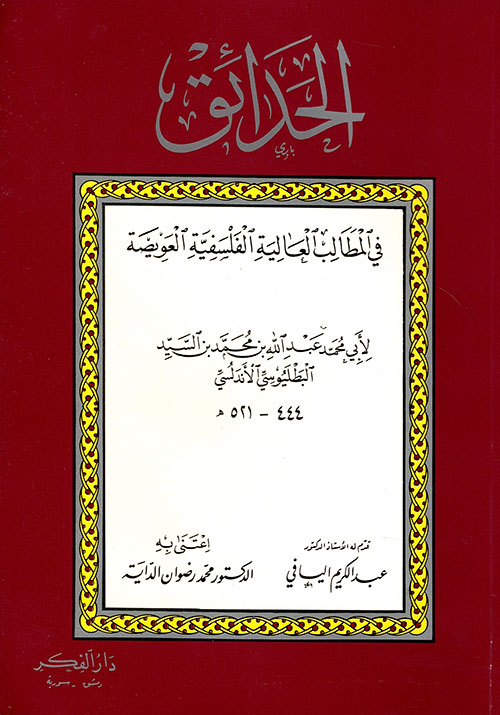 الحَدَائِق
باري
فِي المَطَالِبِ العَالِيَةِ الفَلْسَفِيَّةِ العَوِيصَة
لِأَبِي مُحَمَّد عَبْدِ اللّٰه بن مُحَمَّد بن السَّيِّد
البَطَلْيَوسِيّ الأَنْدَلُسِيّ
٤٤٤ - ٥٢١ هـ
قدّم له الأستاذ الدكتور
عبد الكريم اليافي
اِعْتَنَى بِهِ
الدكتور محمد رضوان الداية
دَارُ الفِكر
دمشق - سورية